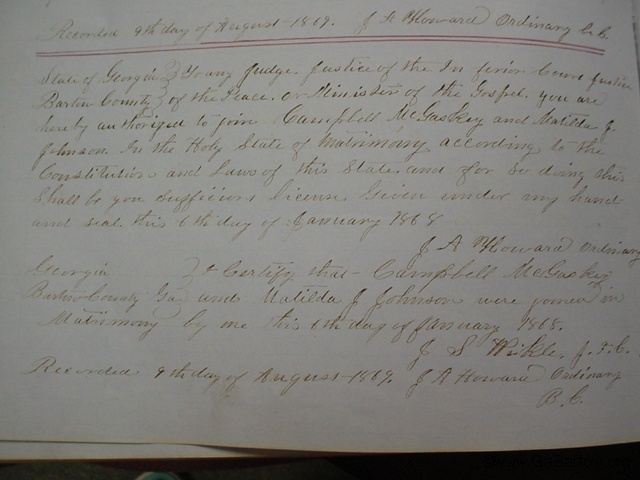 Recorded 9th day of August 1869. J A Howard Ordinary B.C.
State of Georgia } To any Judge, Justice of the Inferior Court Justice
Bartow County } of the Peace, or Minister of the Gospel. you are
hereby authorized to join Campbell McGaskey and Matilda J.
Johnson. In the Holy State of Matrimony according to the
Constitution and Laws of this State and for So doing this
Shall be you Sufficient license. Given under my hand
and seal. this 6th day of January 1868
J A Howard Ordinary
Georgia } I Certify that Campbell McGaskey
Bartow County Ga } and Matilda J Johnson were joined in
Matrimony by me this 6th day of January 1868.
J S Wikle, J.I.C.
Recorded 9th day of August 1869. J A Howard Ordinary
B.C.